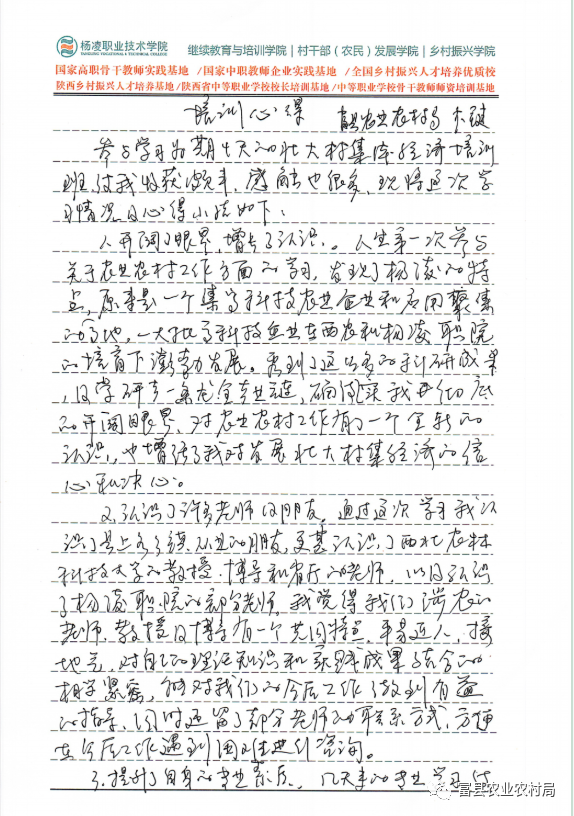 杨凌职业技术学院
继续教育与培训学院 | 村干部（农民）发展学院 | 乡村振兴学院
国家高职骨干教师实践基地 /国家中职教师企业实践基地 /全国乡村振兴人才培养优质校
陕西乡村振兴人才培养基地/陕西省中等职业学校校长培训基地/中等职业学校骨干教师师资培训基地
培训心得 富县农业农村局
参与学习为期七天的壮大村集体经济培训
班使我收获颇丰，感触也很多，现将这次学
习情况及心得小结如下：
1.开阔了眼界，增长了认识。人生第一次参与
关于农业农村工作方面的学习，发现了杨凌的特
点，原来是一个集高科技农业企业和应用聚集
的高地，一大批高科技企业在西农和杨凌职院
的培育下蓬勃发展。看到了这么多的科研成果
，及学研产一条龙全产业链，确实让我彻底
的开阔眼界，对农业农村工作有了一个全新的
认识，也增强了我对发展壮大村集体经济的信
心和决心。
2.认识了许多老师及朋友。通过这次学习我认
识了县上各乡镇、从业的朋友，更甚认识了西北农林
科技大学的教授、博导和省厅的老师，以及认识
了杨凌职院的部分老师。我觉得我们涉农的
老师、教授及博导有一个共同特点，平易近人，接
地气，对自己的理论知识和实践成果结合的
相当紧密，能对我们的今后工作做到有益
的指导，同时还留了部分老师的联系方式，方便
在今后工作遇到困难进行咨询。
3.提升了自身的专业素质。几天来的专业学习使
富县农业农村局